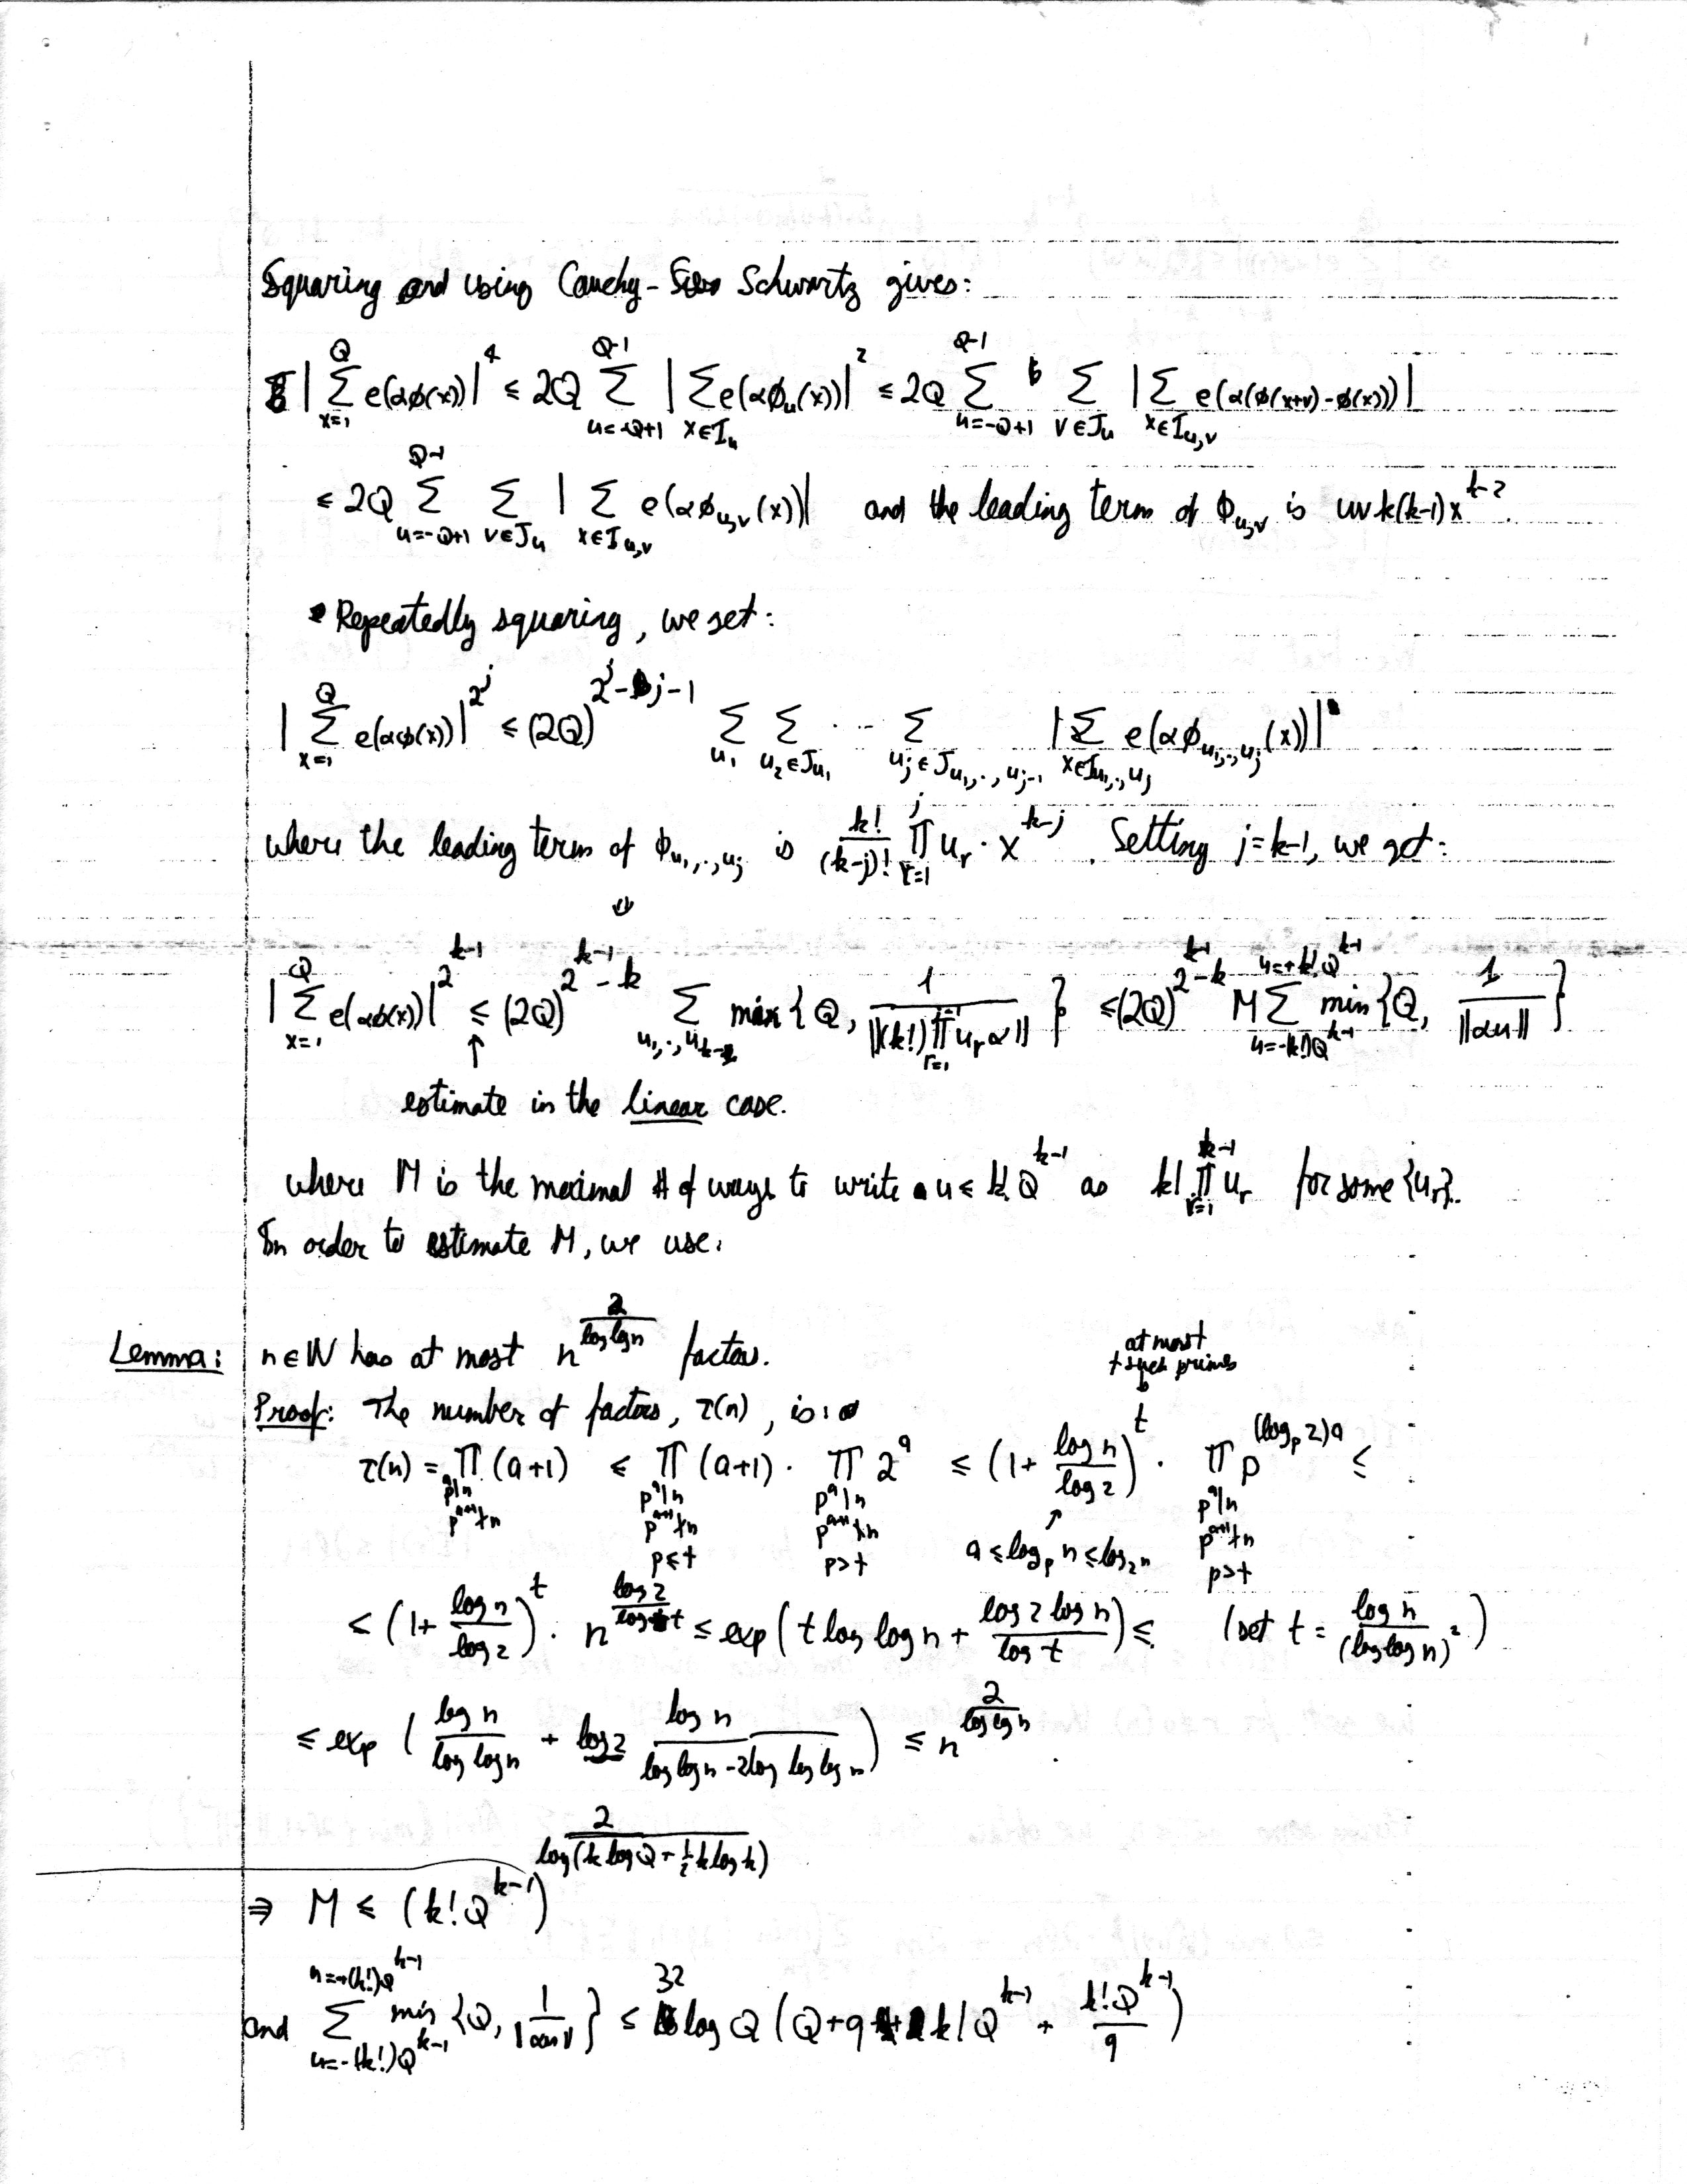 Squaring and using Cauchy-Schwartz gives:
|∑_{x=1}^{Q} e(αφ(x))|^4 ≤ 2Q ∑_{u=-Q+1}^{Q-1} |∑_{x∈I_u} e(αφ_u(x))|^2 ≤ 2Q ∑_{u=-Q+1}^{Q-1} ∑_{v∈J_u} |∑_{x∈I_{u,v}} e(α(φ(x+v)-φ(x)))|
≤ 2Q ∑_{u=-Q+1}^{Q-1} ∑_{v∈J_u} |∑_{x∈I_{u,v}} e(αφ_{u,v}(x))| and the leading term of φ_{u,v} is uvk(k-1)x^{k-2}.
• Repeatedly squaring, we get:
|∑_{x=1}^{Q} e(αφ(x))|^{2^j} ≤ (2Q)^{2^j-j-1} ∑_{u_1} ∑_{u_2∈J_{u_1}} ... ∑_{u_j∈J_{u_1,..,u_{j-1}}} |∑_{x∈I_{u_1,..,u_j}} e(αφ_{u_1,..,u_j}(x))|
where the leading term of φ_{u_1,..,u_j} is \frac{k!}{(k-j)!} ∏_{r=1}^{j} u_r · x^{k-j}. Setting j=k-1, we get:
⇓
|∑_{x=1}^{Q} e(αφ(x))|^{2^{k-1}} ≤ (2Q)^{2^{k-1}-k} ∑_{u_1,..,u_{k-1}} min{Q, \frac{1}{||(k!)∏_{r=1}^{k-1} u_r α||}} ≤ (2Q)^{2^{k-1}-k} M ∑_{u=-k!Q^{k-1}}^{u=+k!Q^{k-1}} min{Q, \frac{1}{||αu||}}
↑
estimate in the linear case.
where M is the maximal # of ways to write u ≤ k!Q^{k-1} as k!∏_{r=1}^{k-1} u_r for some {u_r}.
In order to estimate M, we use:
Lemma: n∈ℕ has at most n^{\frac{2}{log log n}} factors.
at most
t such primes
↓
Proof: The number of factors, τ(n), is:
τ(n) = ∏_{p^a|n, p^{a+1}∤n} (a+1) ≤ ∏_{p^a|n, p^{a+1}∤n, p≤t} (a+1) · ∏_{p^a|n, p^{a+1}∤n, p>t} 2^a ≤ (1+\frac{log n}{log 2})^t · ∏_{p^a|n, p^{a+1}∤n, p>t} p^{(log_p 2)a} ≤
↑
a ≤ log_p n ≤ log_2 n
≤ (1+\frac{log n}{log 2})^t · n^{\frac{log 2}{log t}} ≤ exp(t log log n + \frac{log 2 log n}{log t}) ≤ (set t = \frac{log n}{(log log n)^2})
≤ exp(\frac{log n}{log log n} + log 2 \frac{log n}{log log n - 2 log log log n}) ≤ n^{\frac{2}{log log n}}.
⇒ M ≤ (k!Q^{k-1})^{\frac{2}{log(k log Q + \frac{1}{2} k log k)}}
and ∑_{u=-(k!)Q^{k-1}}^{u=+(k!)Q^{k-1}} min{Q, \frac{1}{||αu||}} ≤ 32 log Q (Q+q+k!Q^{k-1} + \frac{k!Q^{k-1}}{q})